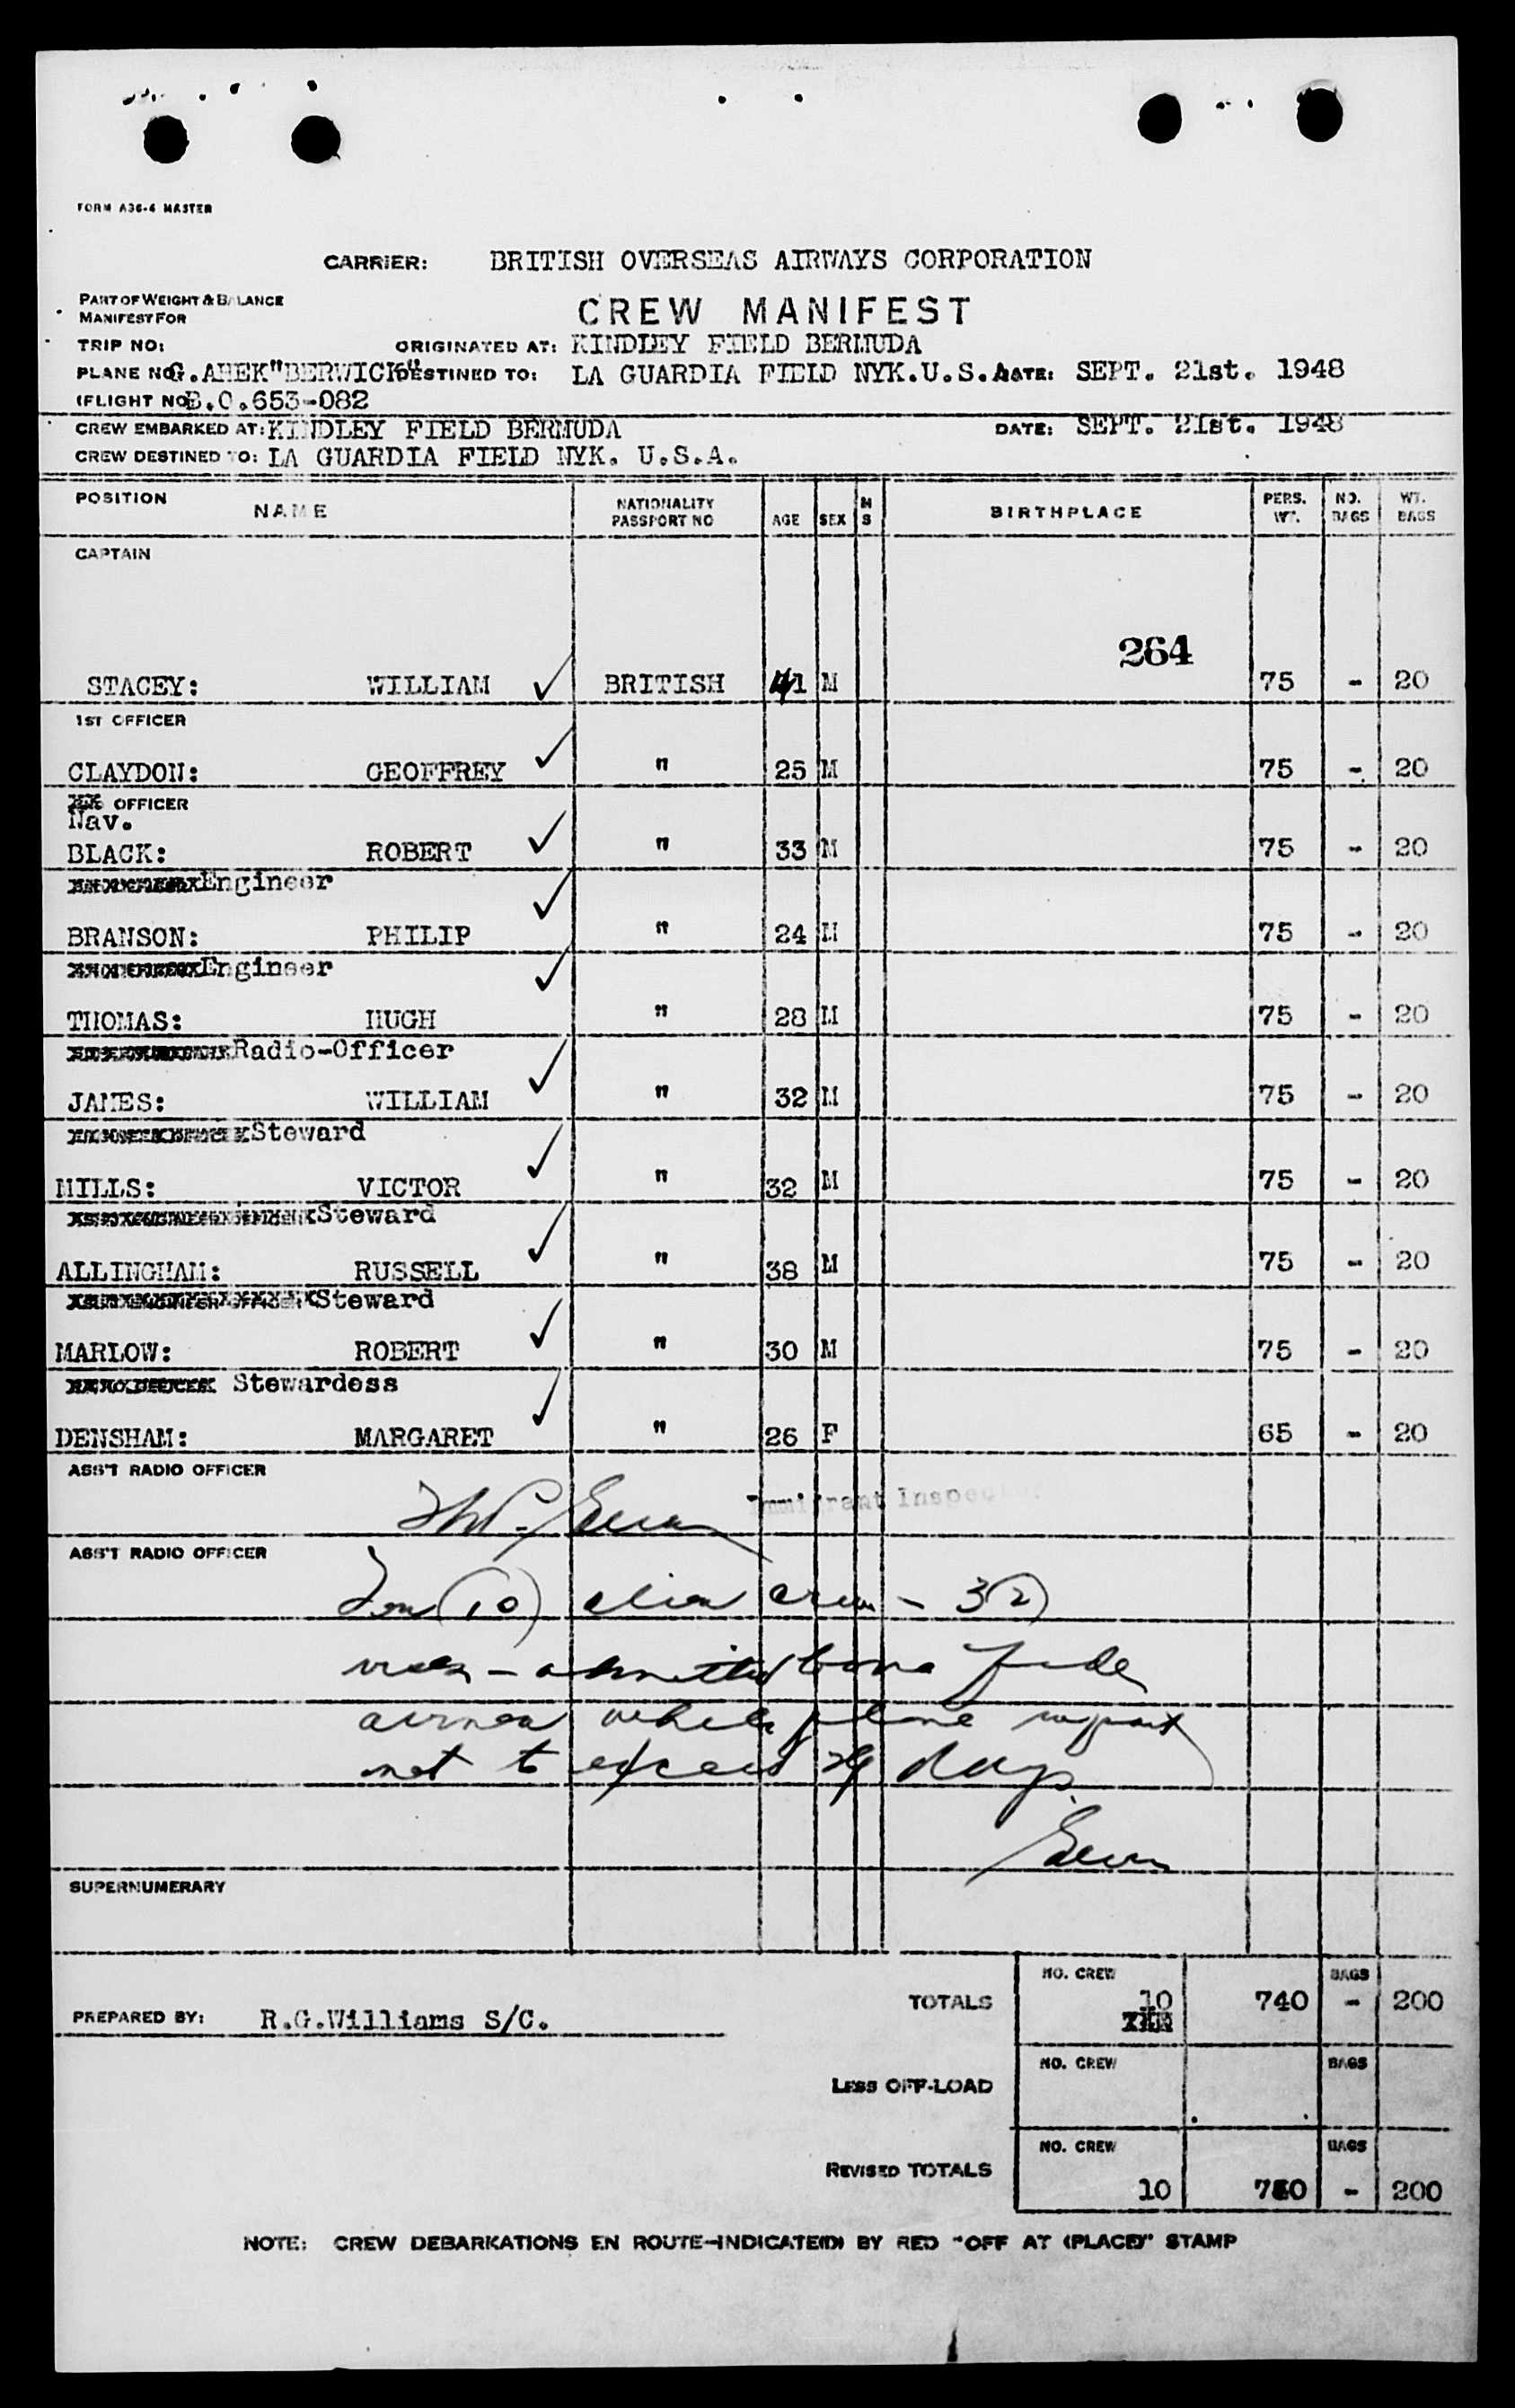 FORM A36-4 MASTER
CARRIER: BRITISH OVERSEAS AIRWAYS CORPORATION
PART OF WEIGHT & BALANCE
MANIFEST FOR
CREW MANIFEST
TRIP NO: ORIGINATED AT: KINDLEY FIELD BERMUDA
PLANE NO. G.AHEK "BERWICK" DESTINED TO: LA GUARDIA FIELD NYK.U.S.A. DATE: SEPT. 21st. 1948
(FLIGHT NO. B.O.653-082
CREW EMBARKED AT: KINDLEY FIELD BERMUDA DATE: SEPT. 21st. 1948
CREW DESTINED TO: LA GUARDIA FIELD NYK. U.S.A.
POSITION NAME NATIONALITY PASSPORT NO AGE SEX M S BIRTHPLACE PERS. WT. NO. BAGS WT. BAGS
CAPTAIN
264
STACEY: WILLIAM ✓ BRITISH 41 M 75 - 20
1ST OFFICER
CLAYDON: GEOFFREY ✓ " 25 M 75 - 20
OFFICER
Nav.
BLACK: ROBERT ✓ " 33 M 75 - 20
Engineer
BRANSON: PHILIP ✓ " 24 M 75 - 20
Engineer
THOMAS: HUGH ✓ " 28 M 75 - 20
Radio-Officer
JAMES: WILLIAM ✓ " 32 M 75 - 20
Steward
MILLS: VICTOR ✓ " 32 M 75 - 20
Steward
ALLINGHAM: RUSSELL ✓ " 38 M 75 - 20
Steward
MARLOW: ROBERT ✓ " 30 M 75 - 20
Stewardess
DENSHAM: MARGARET ✓ " 26 F 65 - 20
ASS'T RADIO OFFICER
Immigrant Inspector
ASS'T RADIO OFFICER
Ten (10) alien crew - 3(2)
visas - admitted bona fide
airmen while plane in port
not to exceed 29 days.
SUPERNUMERARY
NO. CREW BAGS
TOTALS 10 740 - 200
PREPARED BY: R.G.Williams S/C.
NO. CREW BAGS
LESS OFF-LOAD
NO. CREW BAGS
REVISED TOTALS 10 740 - 200
NOTE: CREW DEBARKATIONS EN ROUTE-INDICATE(D) BY RED "OFF AT (PLACE)" STAMP